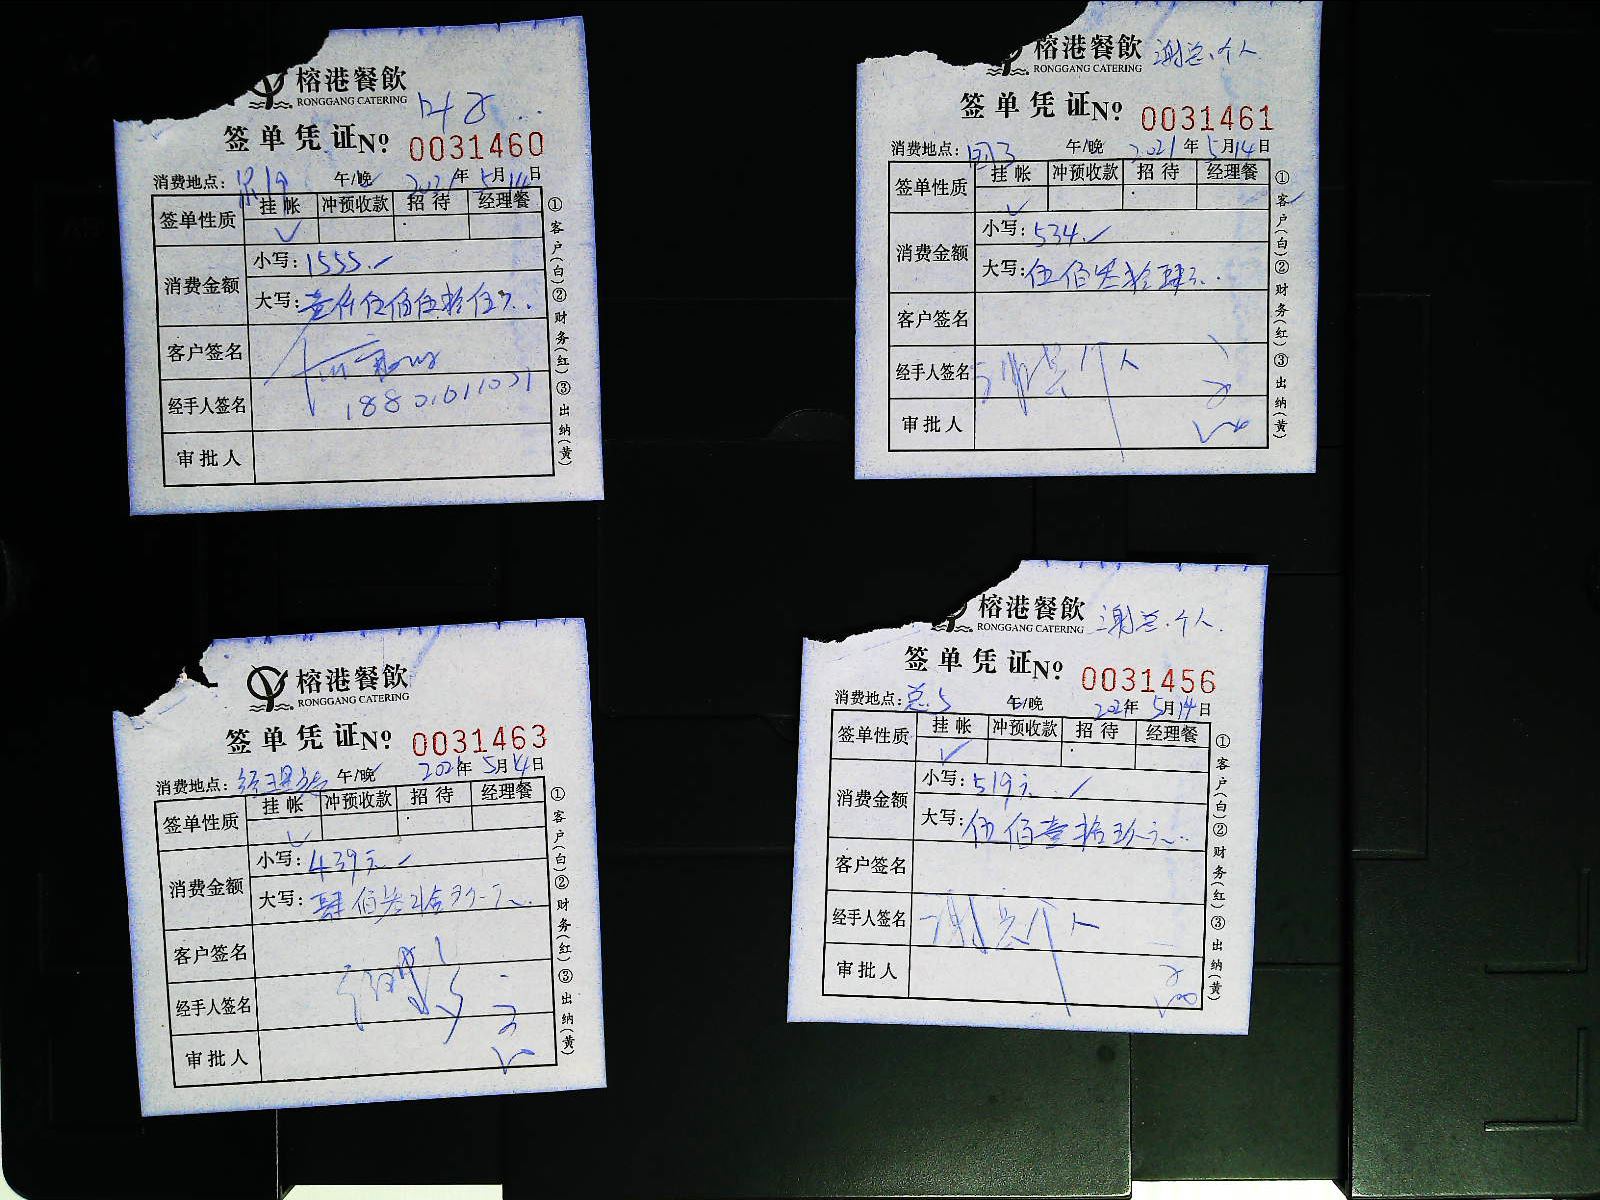 榕港餐飲
RONGGANG CATERING
签单凭证№ 0031460
消费地点: 午/晚 2021年5月14日
签单性质 挂帐 冲预收款 招待 经理餐
✓
消费金额 小写: 1555.
大写: 壹仟伍佰伍拾伍元
客户签名
经手人签名 18801611031
审批人
①客户(白)②财务(红)③出纳(黄)
榕港餐飲 谢总.个人
RONGGANG CATERING
签单凭证№ 0031461
消费地点: 午/晚 2021年5月14日
签单性质 挂帐 冲预收款 招待 经理餐
✓
消费金额 小写: 534.
大写: 伍佰叁拾肆元
客户签名
经手人签名 谢总个人
审批人
①客户(白)②财务(红)③出纳(黄)
榕港餐飲
RONGGANG CATERING
签单凭证№ 0031463
消费地点: 午/晚 2021年5月14日
签单性质 挂帐 冲预收款 招待 经理餐
✓
消费金额 小写: 439元
大写: 肆佰叁拾玖元
客户签名
经手人签名
审批人
①客户(白)②财务(红)③出纳(黄)
榕港餐飲 谢总.个人
RONGGANG CATERING
签单凭证№ 0031456
消费地点: 总5 午/晚 2021年5月14日
签单性质 挂帐 冲预收款 招待 经理餐
✓
消费金额 小写: 519元
大写: 伍佰壹拾玖元
客户签名
经手人签名 谢总个人
审批人
①客户(白)②财务(红)③出纳(黄)